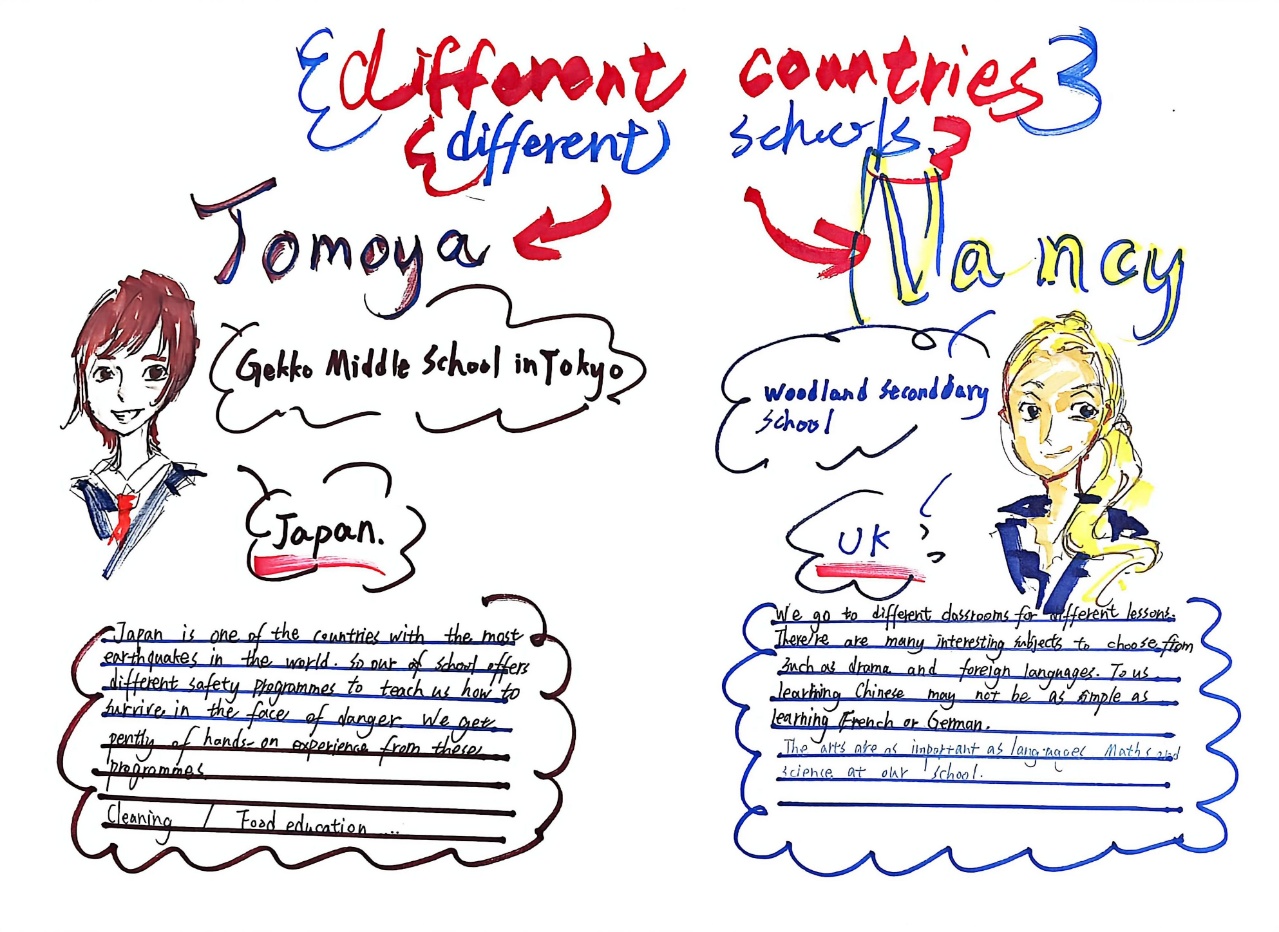 different countries
different schools.
Tomoya
Nancy
Gekko Middle School in Tokyo
Woodland Seconddary
School
Japan.
UK
Japan is one of the countries with the most
earthquakes in the world. So our of school offers
different safety programmes to teach us how to
survive in the face of danger. We get
pently of hands-on experience from these
programmes
Cleaning / Food education ....
We go to different classrooms for different lessons.
There're are many interesting subjects to choose from
such as drama and foreign languages. To us
learning Chinese may not be as simple as
learning French or German.
The arts are as important as languages Maths and
science at our school.